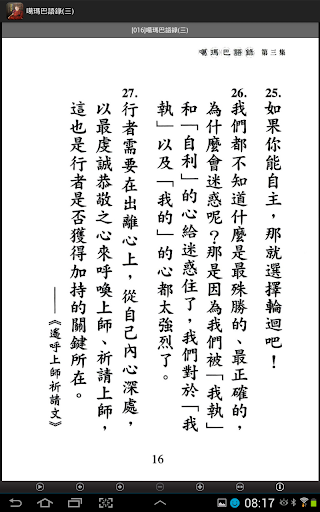 噶瑪巴語錄(三)
[016]噶瑪巴語錄(三)
噶瑪巴語錄 第三集
25. 如果你能自主，那就選擇輪迴吧！
26. 我們都不知道什麼是最殊勝的、最正確的，
為什麼會迷惑呢？那是因為我們被「我執」
和「自利」的心給迷惑住了，我們對於「我
執」以及「我的」的心都太強烈了。
27. 行者需要在出離心上，從自己內心深處，
以最虔誠恭敬之心來呼喚上師、祈請上師，
這也是行者是否獲得加持的關鍵所在。
——《遙呼上師祈請文》
16
08:17